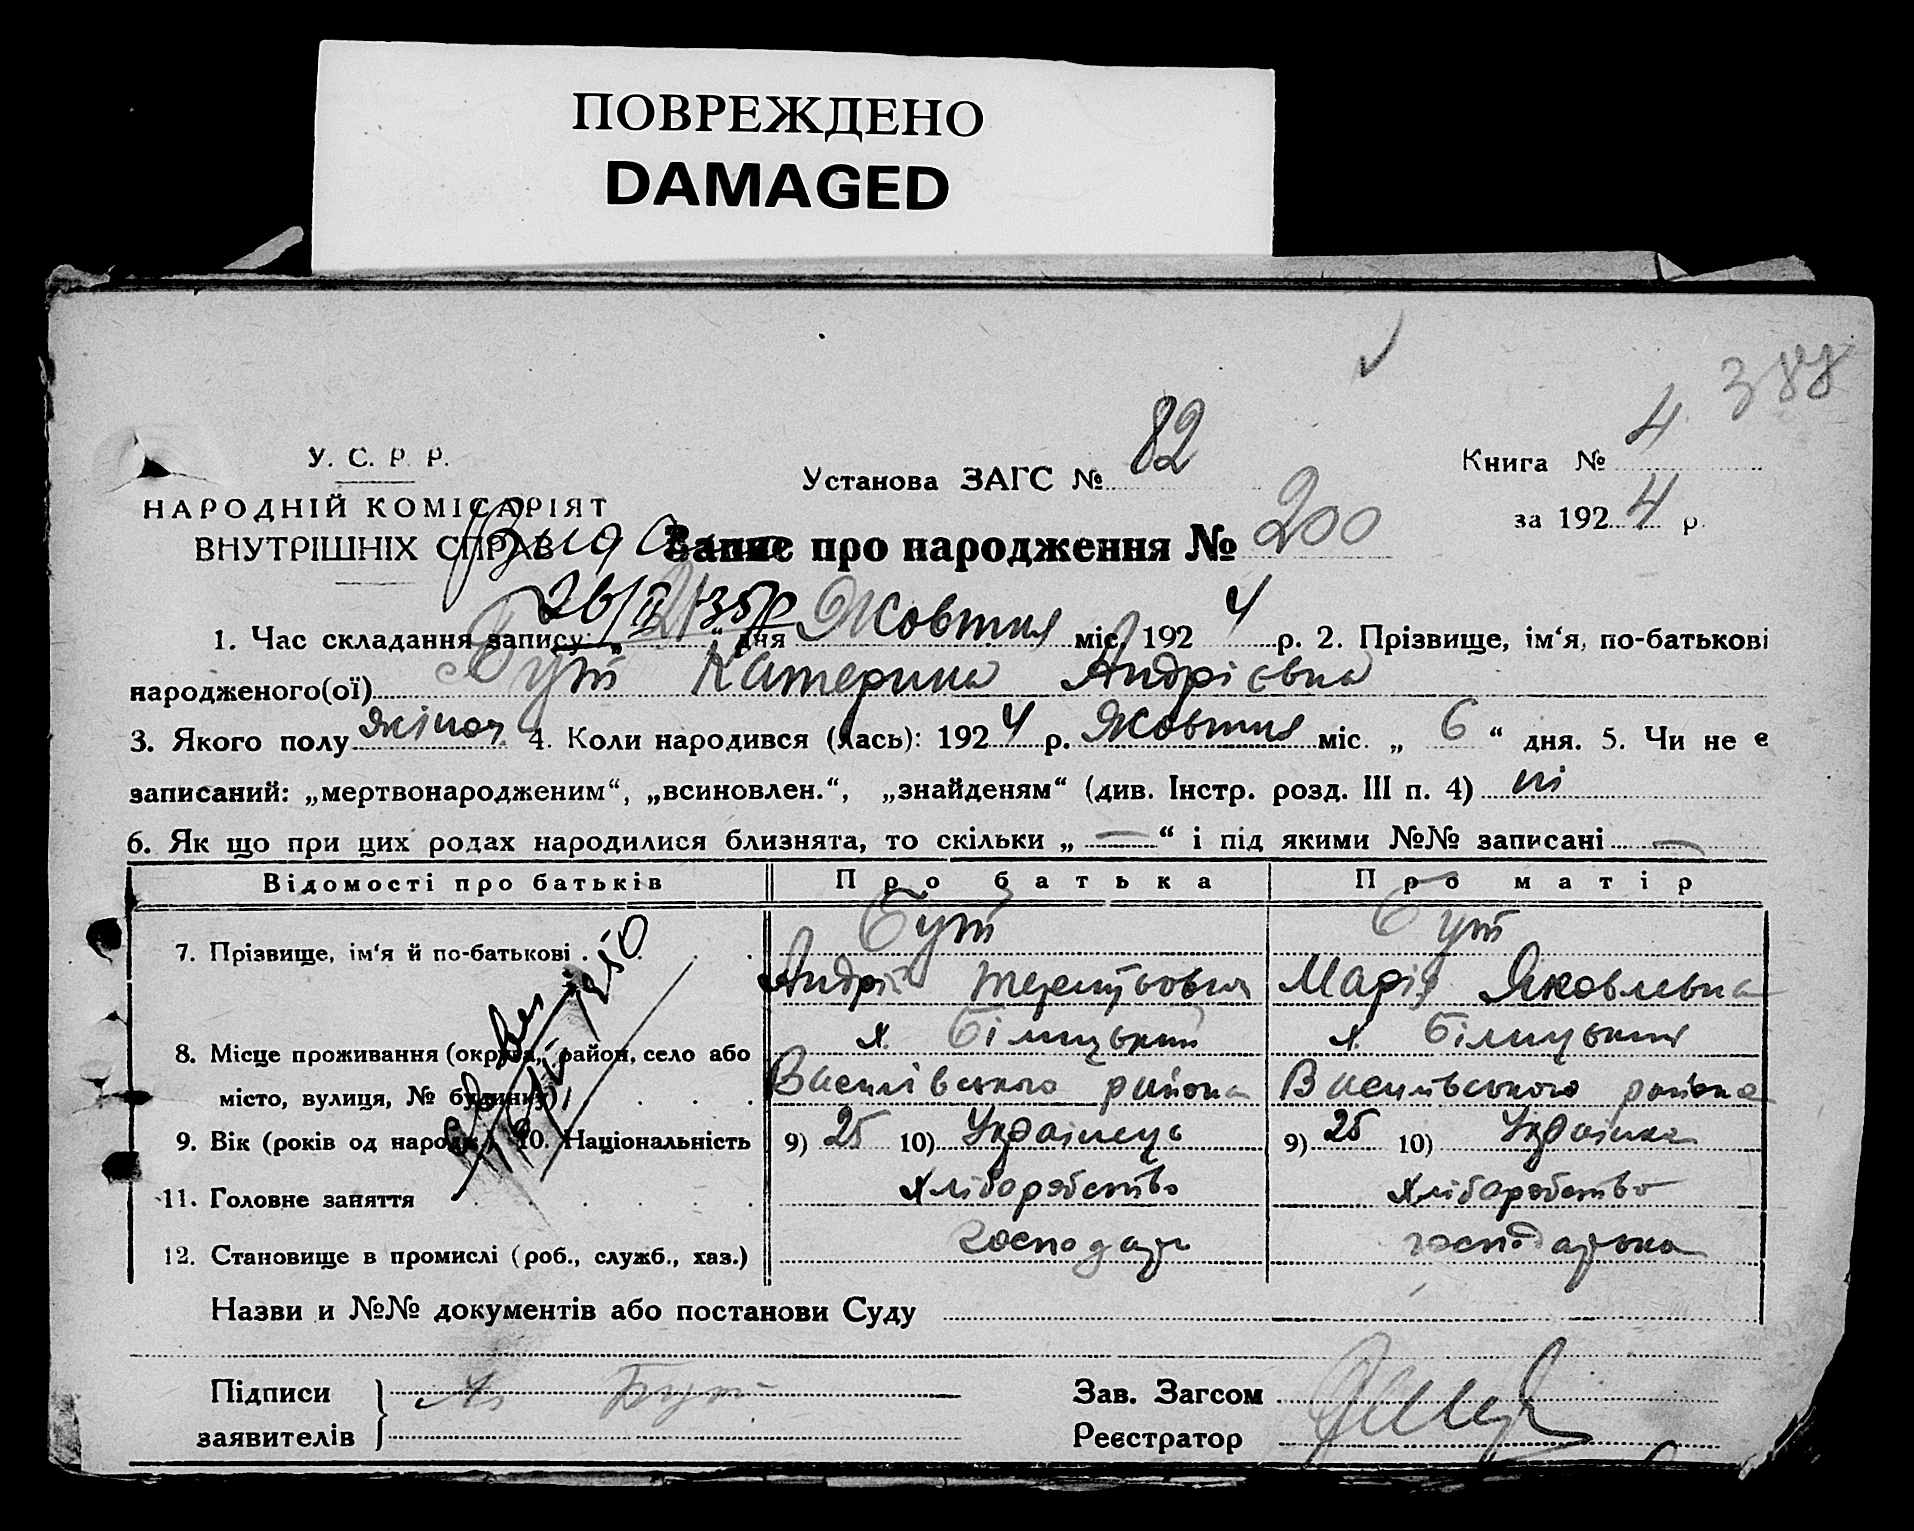 ПОВРЕЖДЕНО
DAMAGED
388
У. С. Р. Р.
НАРОДНІЙ КОМІСАРІЯТ
ВНУТРІШНІХ СПРАВ
Установа ЗАГС № 82
Книга № 4
за 1924 р.
Запис про народження № 200
26/II 35р
1. Час складання запису: „21“ дня Жовтня міс. 1924 р. 2. Прізвище, ім‘я, по-батькові
народженого(ої) Бут Катерина Андрієвна
3. Якого полу жіноч. 4. Коли народився (лась): 1924 р. Жовтня міс. „ 6 “ дня. 5. Чи не є
записаний: „мертвонародженим“, „всиновлен.“, „знайденям“ (див. Інстр. розд. III п. 4) ні
6. Як що при цих родах народилися близнята, то скільки „ — “ і під якими №№ записані —
Відомості про батьків Про батька Про матір
7. Прізвище, ім‘я й по-батькові . . . . Бут Бут
Андрій Марія Яковлевна
8. Місце проживання (округа, район, село або х. Білицький х. Білицький
місто, вулиця, № будинку) . . . Василівського района Василівського района
9. Вік (років од народж.) 10. Національність 9) 25 10) Українець 9) 25 10) Українка
11. Головне заняття . . . . хліборобство хліборобство
12. Становище в промислі (роб., служб., хаз.) господар господарька
Назви и №№ документів або постанови Суду
Підписи Бут Зав. Загсом
заявителів Реєстратор